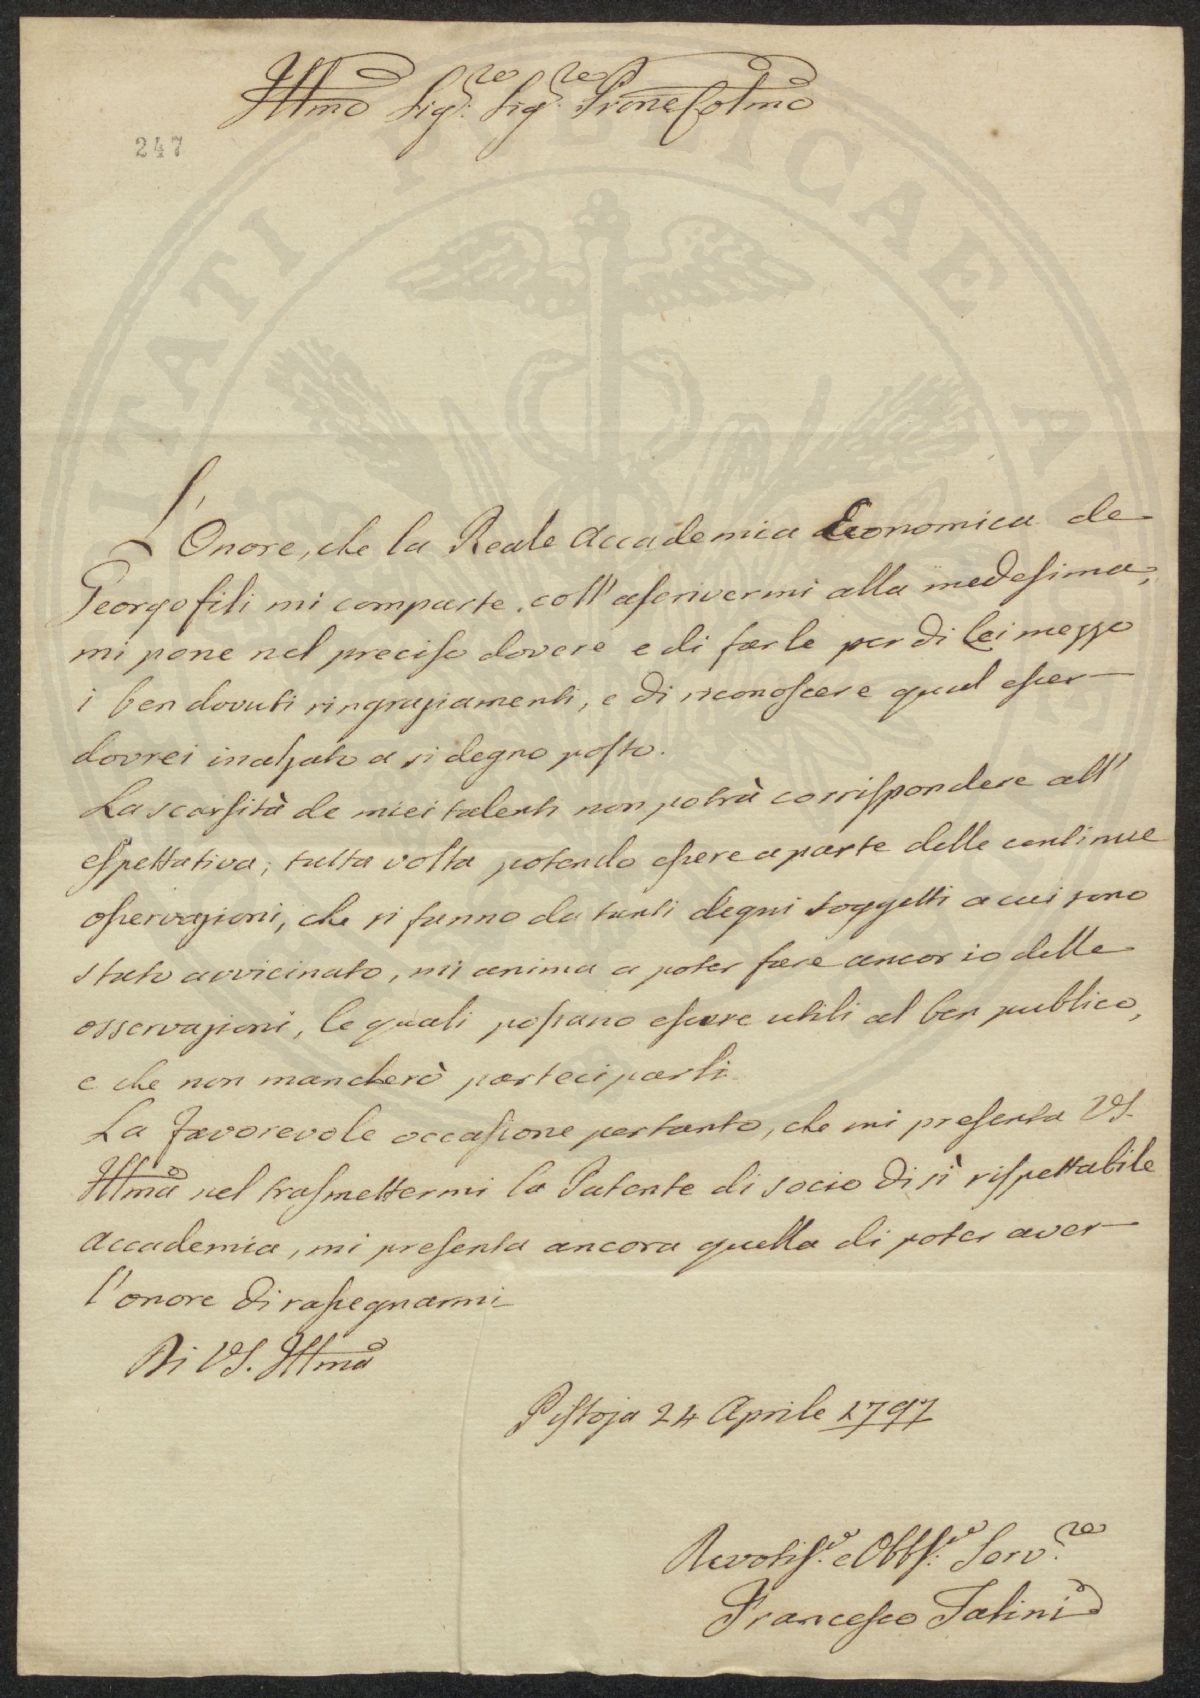 Illmo Sig:re Sig:re Prone Colmo
247
L'Onore, che la Reale Accademia Economica de
Georgofili mi comparte, coll'ascrivermi alla medesima,
mi pone nel preciso dovere e di farle per di Lei mezzo
i ben dovuti ringraziamenti, e di riconoscere qual esser
dovrei inalzato a si degno posto.
La scarsità de miei talenti non potrà corrispondere all'
espettativa; tutta volta potendo essere a parte delle continue
osservazioni, che si fanno da tanti degni soggetti a cui sono
stato avvicinato, mi anima a poter fare ancor io delle
osservazioni, le quali possano essere utili al ben publico,
e che non mancherò parteciparli.
La favorevole occasione pertanto, che mi presenta VS.
Illma nel trasmettermi la Patente di socio di sì rispettabile
Accademia, mi presenta ancora quella di poter aver
l'onore di rassegnarmi
Di VS. Illma
Pistoja 24 Aprile 1797
Devotiss:o e Obbl:o Serv:re
Francesco Tolini